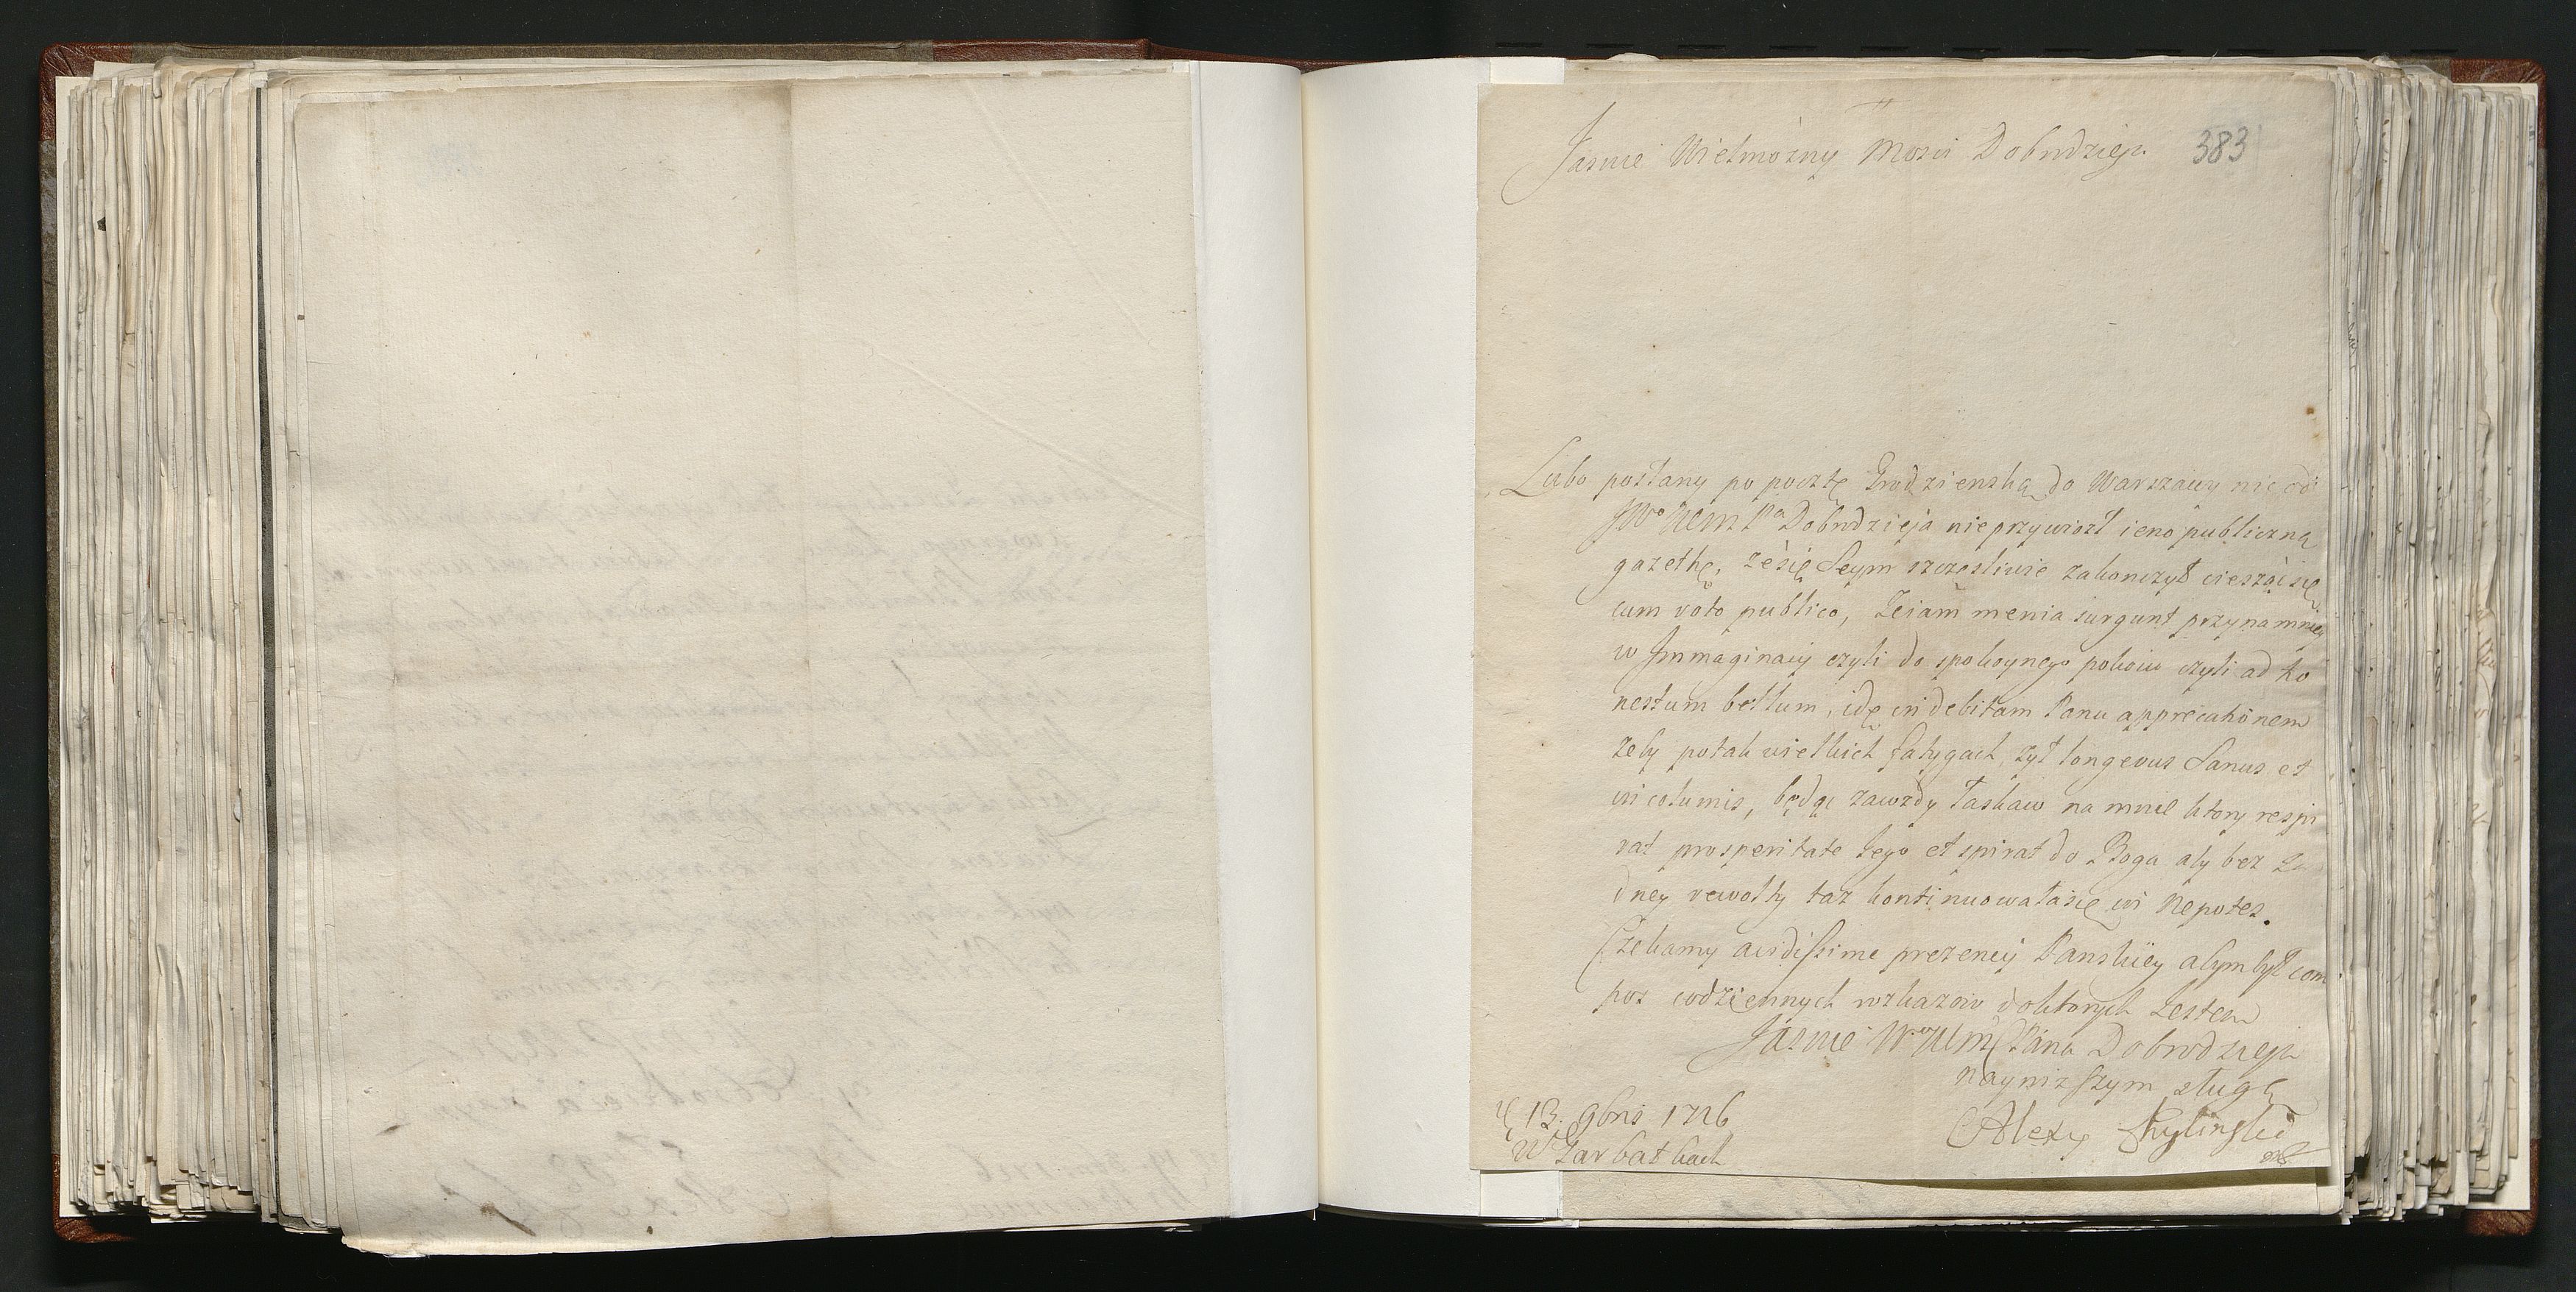 Jasnie Wielmozny Mosci Dobrodzieju
383
Lubo posłany po pocztę Grodzienską do Warszawy nic od
JWo Dobrodzieja nieprzywiozł ieno publiczną
gazetkę, że się Seym szczesliwie zakonczył ciesząc się
cum voto publico, że iam menia surgunt przynamniey
w Immaginacij czyli do spokoynego pokoiu czyli ad ho
nestum bellum, idę in debitam Panu apprecationem
zeby po tak wielkich fatygach, zył longevus Sanus et
incolumis, będąc zawzdy łaskaw na mnie ktory respi
rat prosperitate Jego et spirat do Boga aby bez ża
dney rewolty taz kontinuowała się in Nepotes.
Czekamy avidissime prezencij Panskiey abym był com
pos codziennych rozkazow do ktorych Jestem
Jasnie Wo Pana Dobrodzieja
nayniższym sługą
Alexy
13. 9bris 1726
W Zarbatkach